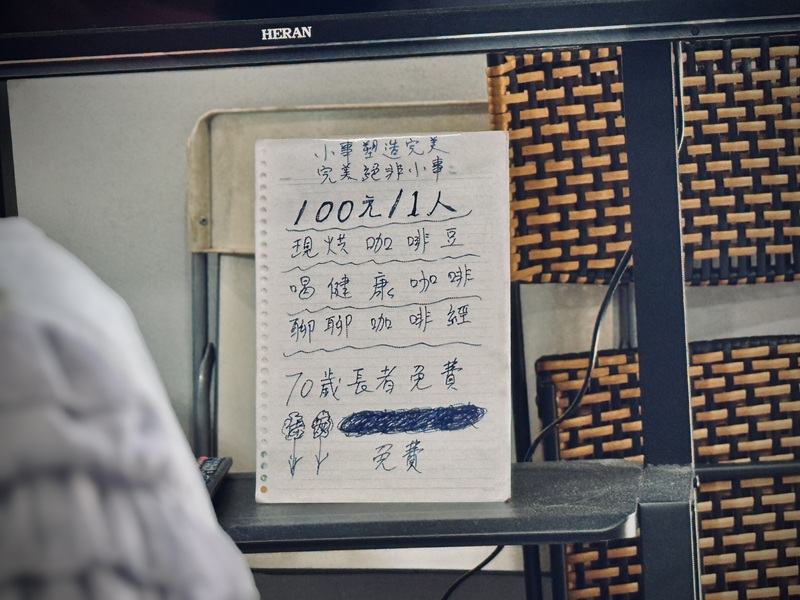 HERAN
小事塑造完美
完美絕非小事
100元/1人
現烘咖啡豆
喝健康咖啡
聊聊咖啡經
70歲長者免費
免費